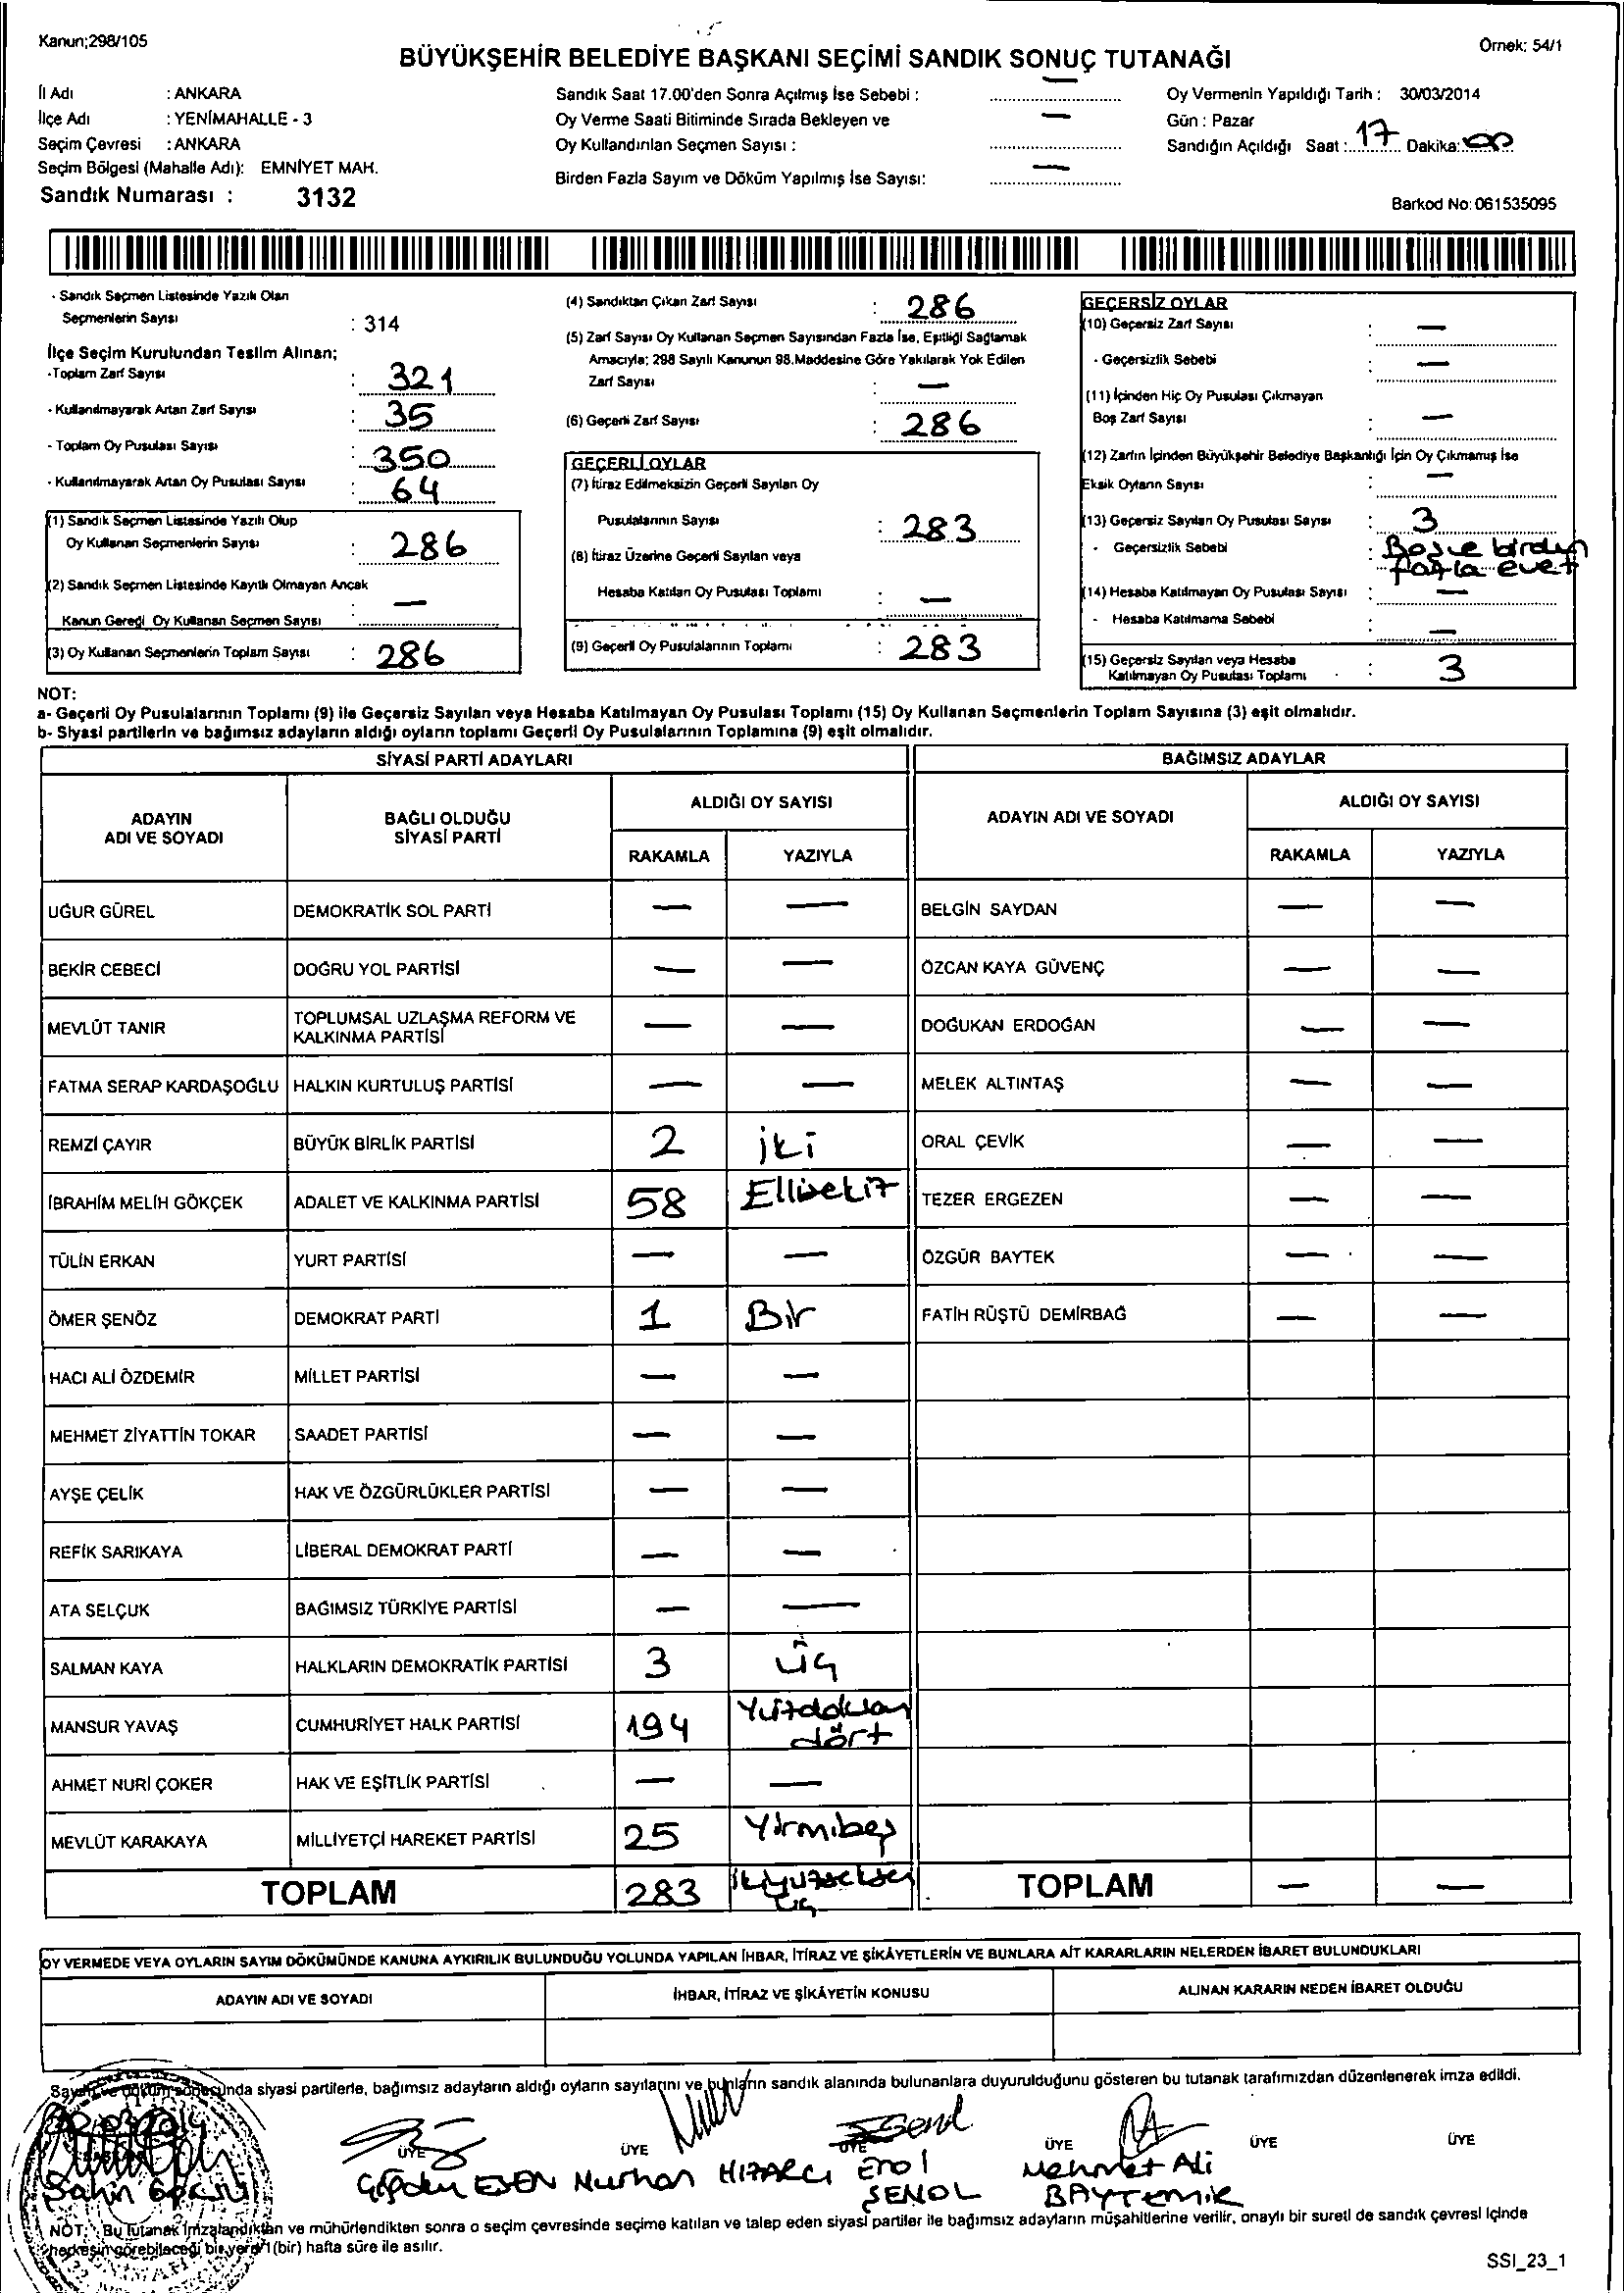 Kanun;298/105
Örnek: 54/1
BÜYÜKŞEHİR BELEDİYE BAŞKANI SEÇİMİ SANDIK SONUÇ TUTANAĞI
İl Adı : ANKARA
İlçe Adı : YENİMAHALLE - 3
Seçim Çevresi : ANKARA
Seçim Bölgesi (Mahalle Adı): EMNİYET MAH.
Sandık Numarası : 3132
Sandık Saat 17.00'den Sonra Açılmış İse Sebebi : —
Oy Verme Saati Bitiminde Sırada Bekleyen ve
Oy Kullandırılan Seçmen Sayısı : —
Birden Fazla Sayım ve Döküm Yapılmış İse Sayısı: —
Oy Vermenin Yapıldığı Tarih : 30/03/2014
Gün : Pazar
Sandığın Açıldığı Saat : 17 Dakika: 00
Barkod No: 061535095
- Sandık Seçmen Listesinde Yazılı Olan
Seçmenlerin Sayısı : 314
İlçe Seçim Kurulundan Teslim Alınan;
-Toplam Zarf Sayısı : 321
- Kullanılmayarak Artan Zarf Sayısı : 35
- Toplam Oy Pusulası Sayısı : 350
- Kullanılmayarak Artan Oy Pusulası Sayısı : 64
(1) Sandık Seçmen Listesinde Yazılı Olup
Oy Kullanan Seçmenlerin Sayısı : 286
(2) Sandık Seçmen Listesinde Kayıtlı Olmayan Ancak
Kanun Gereği Oy Kullanan Seçmen Sayısı —
(3) Oy Kullanan Seçmenlerin Toplam Sayısı : 286
(4) Sandıktan Çıkan Zarf Sayısı : 286
(5) Zarf Sayısı Oy Kullanan Seçmen Sayısından Fazla İse, Eşitliği Sağlamak
Amacıyla; 298 Sayılı Kanunun 98.Maddesine Göre Yakılarak Yok Edilen
Zarf Sayısı : —
(6) Geçerli Zarf Sayısı : 286
GEÇERLİ OYLAR
(7) İtiraz Edilmeksizin Geçerli Sayılan Oy
Pusulalarının Sayısı : 283
(8) İtiraz Üzerine Geçerli Sayılan veya
Hesaba Katılan Oy Pusulası Toplamı : —
(9) Geçerli Oy Pusulalarının Toplamı : 283
GEÇERSİZ OYLAR
(10) Geçersiz Zarf Sayısı : —
- Geçersizlik Sebebi : —
(11) İçinden Hiç Oy Pusulası Çıkmayan
Boş Zarf Sayısı : —
(12) Zarfın İçinden Büyükşehir Belediye Başkanlığı İçin Oy Çıkmamış İse
Eksik Oyların Sayısı : —
(13) Geçersiz Sayılan Oy Pusulası Sayısı : 3
- Geçersizlik Sebebi : Boş ve birden
fazla evet
(14) Hesaba Katılmayan Oy Pusulası Sayısı : —
- Hesaba Katılmama Sebebi : —
(15) Geçersiz Sayılan veya Hesaba
Katılmayan Oy Pusulası Toplamı : 3
NOT:
a- Geçerli Oy Pusulalarının Toplamı (9) ile Geçersiz Sayılan veya Hesaba Katılmayan Oy Pusulası Toplamı (15) Oy Kullanan Seçmenlerin Toplam Sayısına (3) eşit olmalıdır.
b- Siyasi partilerin ve bağımsız adayların aldığı oyların toplamı Geçerli Oy Pusulalarının Toplamına (9) eşit olmalıdır.
SİYASİ PARTİ ADAYLARI BAĞIMSIZ ADAYLAR
ADAYIN
ADI VE SOYADI
BAĞLI OLDUĞU
SİYASİ PARTİ
ALDIĞI OY SAYISI
RAKAMLA YAZIYLA
ADAYIN ADI VE SOYADI
ALDIĞI OY SAYISI
RAKAMLA YAZIYLA
UĞUR GÜREL DEMOKRATİK SOL PARTİ — — BELGİN SAYDAN — —
BEKİR CEBECİ DOĞRU YOL PARTİSİ — — ÖZCAN KAYA GÜVENÇ — —
MEVLÜT TANIR TOPLUMSAL UZLAŞMA REFORM VE
KALKINMA PARTİSİ — — DOĞUKAN ERDOĞAN — —
FATMA SERAP KARDAŞOĞLU HALKIN KURTULUŞ PARTİSİ — — MELEK ALTINTAŞ — —
REMZİ ÇAYIR BÜYÜK BİRLİK PARTİSİ 2 iki ORAL ÇEVİK — —
İBRAHİM MELİH GÖKÇEK ADALET VE KALKINMA PARTİSİ 58 Ellisekiz TEZER ERGEZEN — —
TÜLİN ERKAN YURT PARTİSİ — — ÖZGÜR BAYTEK — —
ÖMER ŞENÖZ DEMOKRAT PARTİ 1 Bir FATİH RÜŞTÜ DEMİRBAĞ — —
HACI ALİ ÖZDEMİR MİLLET PARTİSİ — —
MEHMET ZİYATTİN TOKAR SAADET PARTİSİ — —
AYŞE ÇELİK HAK VE ÖZGÜRLÜKLER PARTİSİ — —
REFİK SARIKAYA LİBERAL DEMOKRAT PARTİ — —
ATA SELÇUK BAĞIMSIZ TÜRKİYE PARTİSİ — —
SALMAN KAYA HALKLARIN DEMOKRATİK PARTİSİ 3 üç
MANSUR YAVAŞ CUMHURİYET HALK PARTİSİ 194 Yüzdoksan
dört
AHMET NURİ ÇOKER HAK VE EŞİTLİK PARTİSİ — —
MEVLÜT KARAKAYA MİLLİYETÇİ HAREKET PARTİSİ 25 Yirmibeş
TOPLAM 283 ikiyüzseksen
üç TOPLAM — —
OY VERMEDE VEYA OYLARIN SAYIM DÖKÜMÜNDE KANUNA AYKIRILIK BULUNDUĞU YOLUNDA YAPILAN İHBAR, İTİRAZ VE ŞİKÂYETLERİN VE BUNLARA AİT KARARLARIN NELERDEN İBARET BULUNDUKLARI
ADAYIN ADI VE SOYADI İHBAR, İTİRAZ VE ŞİKÂYETİN KONUSU ALINAN KARARIN NEDEN İBARET OLDUĞU
Sayım ve döküm sonucunda siyasi partilerle, bağımsız adayların aldığı oyların sayılarını ve bunların sandık alanında bulunanlara duyurulduğunu gösteren bu tutanak tarafımızdan düzenlenerek imza edildi.
ÜYE ÜYE ÜYE ÜYE ÜYE ÜYE
Şahin ESEN Nurhan HIZARCI Erol
ŞENOL Mehmet Ali
BAYTEMİR
NOT: Bu tutanak imzalandıktan ve mühürlendikten sonra o seçim çevresinde seçime katılan ve talep eden siyasi partiler ile bağımsız adayların müşahitlerine verilir, onaylı bir sureti de sandık çevresi içinde
herkesin görebileceği bir yere 1 (bir) hafta süre ile asılır.
SSI_23_1